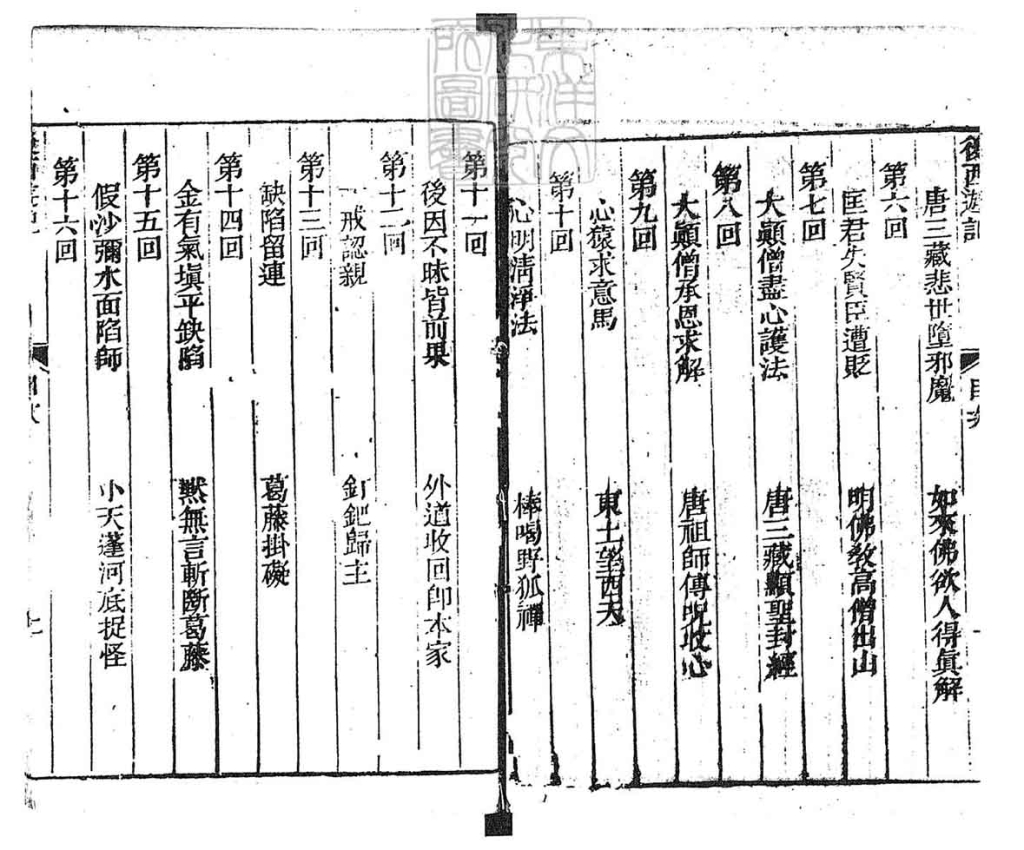 後西遊記
目次
唐三藏悲世墮邪魔　如來佛欲人得眞解
第六回
匡君失賢臣遭貶　明佛教高僧出山
第七回
大顚僧盡心護法　唐三藏顯聖封經
第八回
大顚僧承恩求解　唐祖師傳呪收心
第九回
心猿求意馬　東土望西天
第十回
心明淸淨法　棒喝野狐禪
第十一回
後因不昧皆前果　外道收回卽本家
第十二回
一戒認親　釘鈀歸主
第十三回
缺陷留連　葛藤掛礙
第十四回
金有氣塡平缺陷　默無言斬斷葛藤
第十五回
假沙彌水面陷師　小天蓬河底捉怪
第十六回